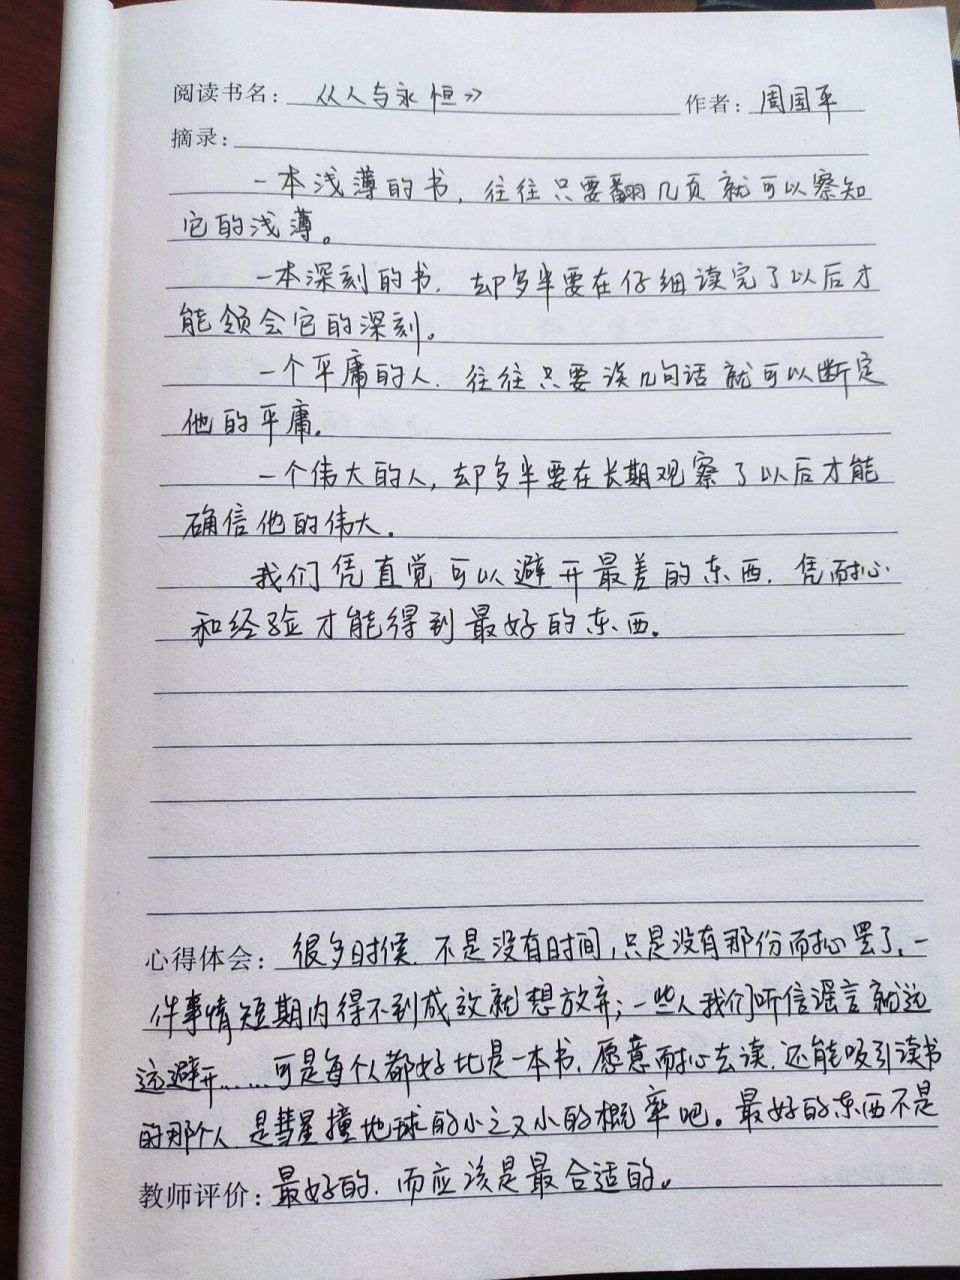 阅读书名：《人与永恒》 作者：周国平
摘录：
一本浅薄的书，往往只要翻几页就可以察知
它的浅薄。
一本深刻的书，却多半要在仔细读完了以后才
能领会它的深刻。
一个平庸的人，往往只要谈几句话就可以断定
他的平庸。
一个伟大的人，却多半要在长期观察了以后才能
确信他的伟大。
我们凭直觉可以避开最差的东西，凭耐心
和经验才能得到最好的东西。
心得体会：很多时候，不是没有时间，只是没有那份耐心罢了，一
件事情短期内得不到成效就想放弃；一些人我们听信谣言就远
远避开……可是每个人都好比是一本书，愿意耐心去读，还能吸引读书
的那个人，是彗星撞地球的小之又小的概率吧。最好的东西不是
教师评价：最好的，而应该是最合适的。